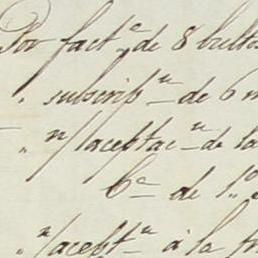 Por fact.ª de 8 bultos
" subscrip.n de 6 m
" n/ acepta.n de la
6.ª de 1.º
" n/ acept.n á la